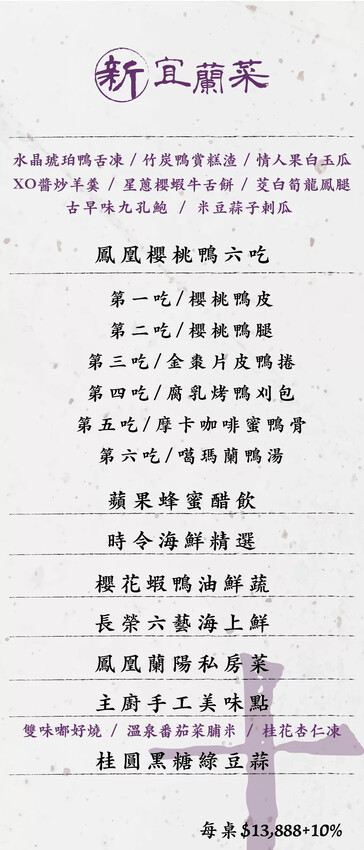 新宜蘭菜
水晶琥珀鴨舌凍 / 竹炭鴨賞糕渣 / 情人果白玉瓜
XO醬炒羊羹 / 星蔥櫻蝦牛舌餅 / 茭白筍龍鳳腿
古早味九孔鮑 / 米豆蒜子刺瓜
鳳凰櫻桃鴨六吃
第一吃/櫻桃鴨皮
第二吃/櫻桃鴨腿
第三吃/金棗片皮鴨捲
第四吃/腐乳烤鴨刈包
第五吃/摩卡咖啡蜜鴨骨
第六吃/噶瑪蘭鴨湯
蘋果蜂蜜醋飲
時令海鮮精選
櫻花蝦鴨油鮮蔬
長榮六藝海上鮮
鳳凰蘭陽私房菜
主廚手工美味點
雙味嘟好燒 / 溫泉番茄菜脯米 / 桂花杏仁凍
桂圓黑糖綠豆蒜
每桌$13,888+10%